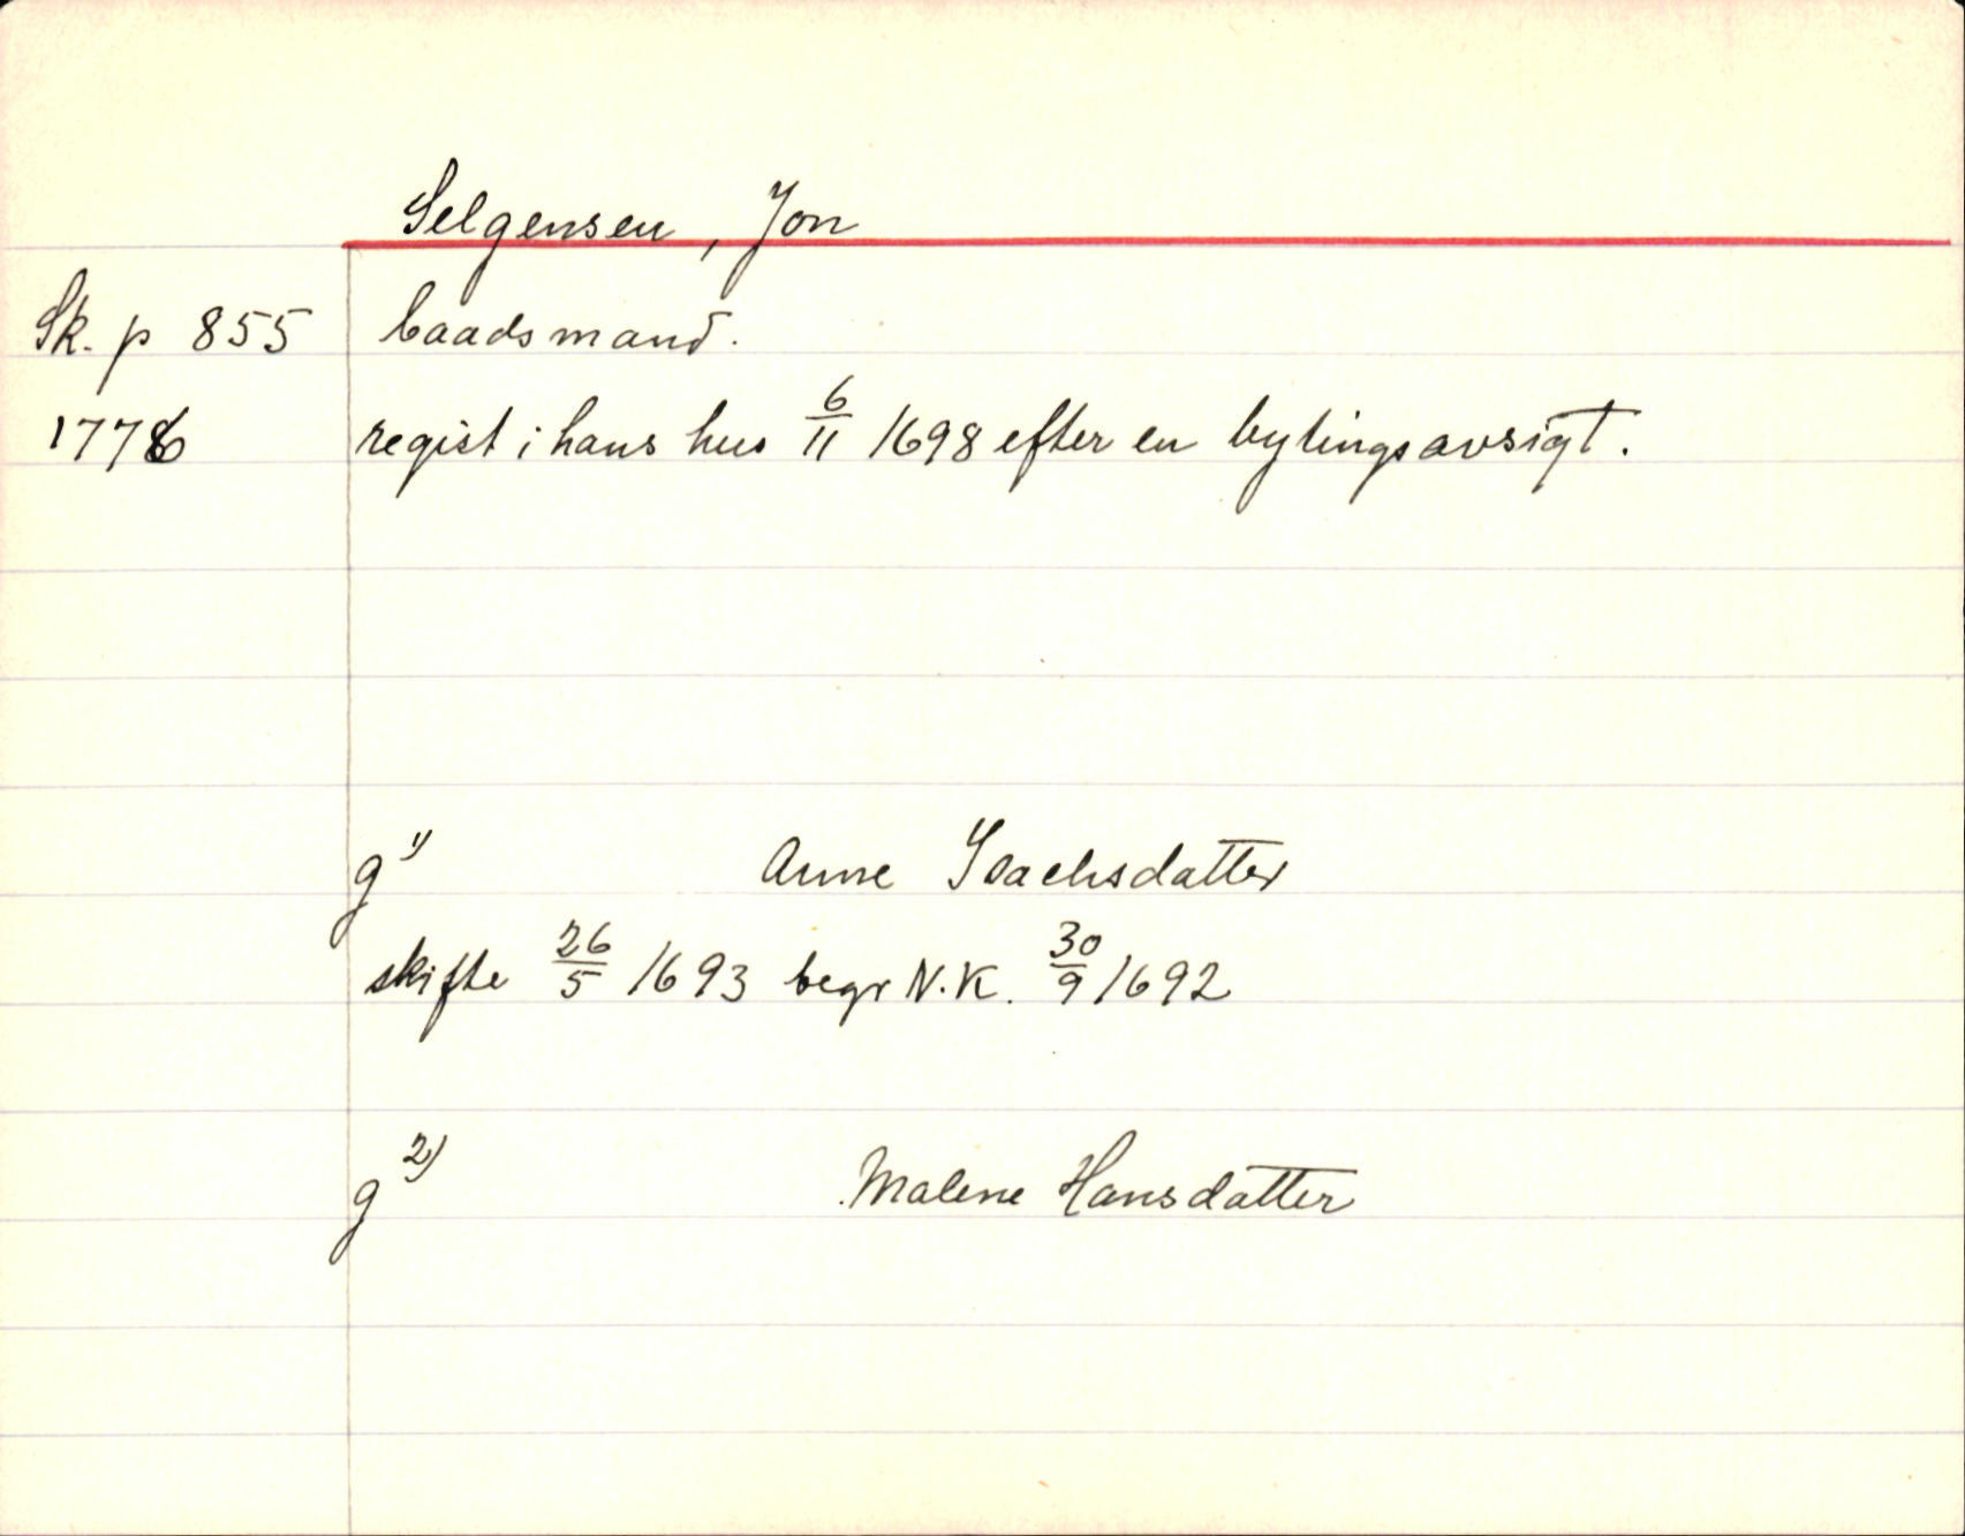 Selgensen, Jon
Sk. p 855 baadsmand.
1778 regist i hans hus 6/11 1698 efter en bytingsavsigt.
g 1) Anne Isachsdatter
skifte 26/5 1693 begr N.K. 30/9 1692
g 2) Malene Hansdatter